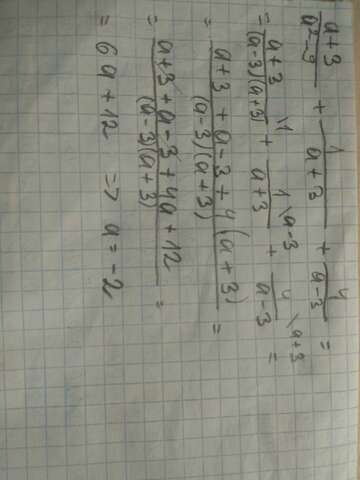 a+3/a²-9 + 1/a+3 + 4/a-3 =
= a+3/(a-3)(a+3) \1 + 1/a+3 \a-3 + 4/a-3 \a+3 =
= a+3 + a-3 + 4(a+3)/(a-3)(a+3) =
= a+3+a-3+4a+12/(a-3)(a+3) =
= 6a+12 => a=-2